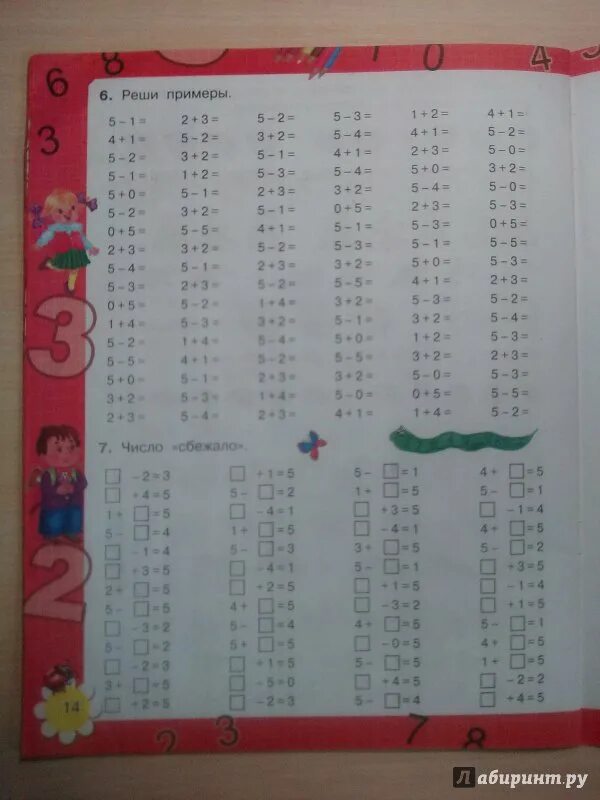 6 8 1 0 4
3
6. Реши примеры.
5 – 1 = 2 + 3 = 5 – 2 = 5 – 3 = 1 + 2 = 4 + 1 =
4 + 1 = 5 – 2 = 3 + 2 = 5 – 4 = 4 + 1 = 5 – 2 =
5 – 2 = 3 + 2 = 5 – 1 = 4 + 1 = 2 + 3 = 5 – 0 =
5 – 1 = 1 + 2 = 5 – 3 = 5 – 4 = 5 + 0 = 3 + 2 =
5 + 0 = 5 – 1 = 2 + 3 = 3 + 2 = 5 – 4 = 5 – 0 =
5 – 2 = 3 + 2 = 5 – 1 = 0 + 5 = 2 + 3 = 5 – 3 =
0 + 5 = 5 – 5 = 4 + 1 = 5 – 3 = 5 – 3 = 5 – 0 =
2 + 3 = 3 + 2 = 5 – 2 = 5 – 3 = 5 – 1 = 5 – 5 =
5 – 4 = 5 – 1 = 2 + 3 = 3 + 2 = 5 + 0 = 5 – 3 =
5 – 3 = 2 + 3 = 5 – 2 = 5 – 5 = 4 + 1 = 2 + 3 =
0 + 5 = 5 – 2 = 1 + 4 = 3 + 2 = 5 – 3 = 5 – 2 =
1 + 4 = 5 – 3 = 3 + 2 = 5 – 1 = 3 + 2 = 5 – 4 =
5 – 2 = 1 + 4 = 5 – 4 = 5 + 0 = 1 + 2 = 5 – 3 =
5 – 5 = 4 + 1 = 5 – 2 = 5 – 5 = 3 + 2 = 2 + 3 =
5 + 0 = 5 – 1 = 2 + 3 = 3 + 2 = 5 – 0 = 5 – 3 =
3 + 2 = 5 – 3 = 1 + 4 = 5 – 0 = 0 + 5 = 5 – 5 =
2 + 3 = 5 – 4 = 2 + 3 = 4 + 1 = 1 + 4 = 5 – 2 =
3
7. Число «сбежало».
□ – 2 = 3 □ + 1 = 5 5 – □ = 1 4 + □ = 5
□ + 4 = 5 5 – □ = 2 1 + □ = 5 5 – □ = 1
1 + □ = 5 □ – 4 = 1 □ + 3 = 5 □ – 1 = 4
5 – □ = 4 1 + □ = 5 □ – 4 = 1 4 + □ = 5
□ – 1 = 4 5 – □ = 3 3 + □ = 5 5 – □ = 2
□ + 3 = 5 □ – 4 = 1 5 – □ = 1 □ + 3 = 5
2 + □ = 5 □ + 2 = 5 □ + 1 = 5 □ – 1 = 4
5 – □ = 5 4 + □ = 5 □ – 3 = 2 □ + 1 = 5
□ – 3 = 2 5 – □ = 4 4 + □ = 5 5 – □ = 1
5 – □ = 2 5 + □ = 5 □ – 0 = 5 4 + □ = 5
□ – 2 = 3 □ + 1 = 5 5 – □ = 5 1 + □ = 5
3 + □ = 5 □ – 5 = 0 □ + 4 = 5 □ – 2 = 2
□ + 2 = 5 □ – 2 = 3 5 – □ = 4 □ + 4 = 5
2
14
2 3 7 8
Лабиринт.ру